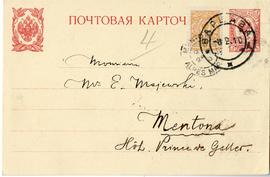 ПОЧТОВАЯ КАРТОЧ
ВАРШАВА
4
Monsieur
Mr E. Majewski
Mentona
Hôt. Prince de Galles.